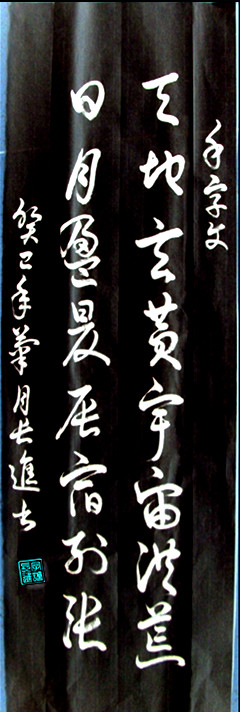 千字文
天地玄黄宇宙洪荒
日月盈昃辰宿列张
癸巳年月长進书